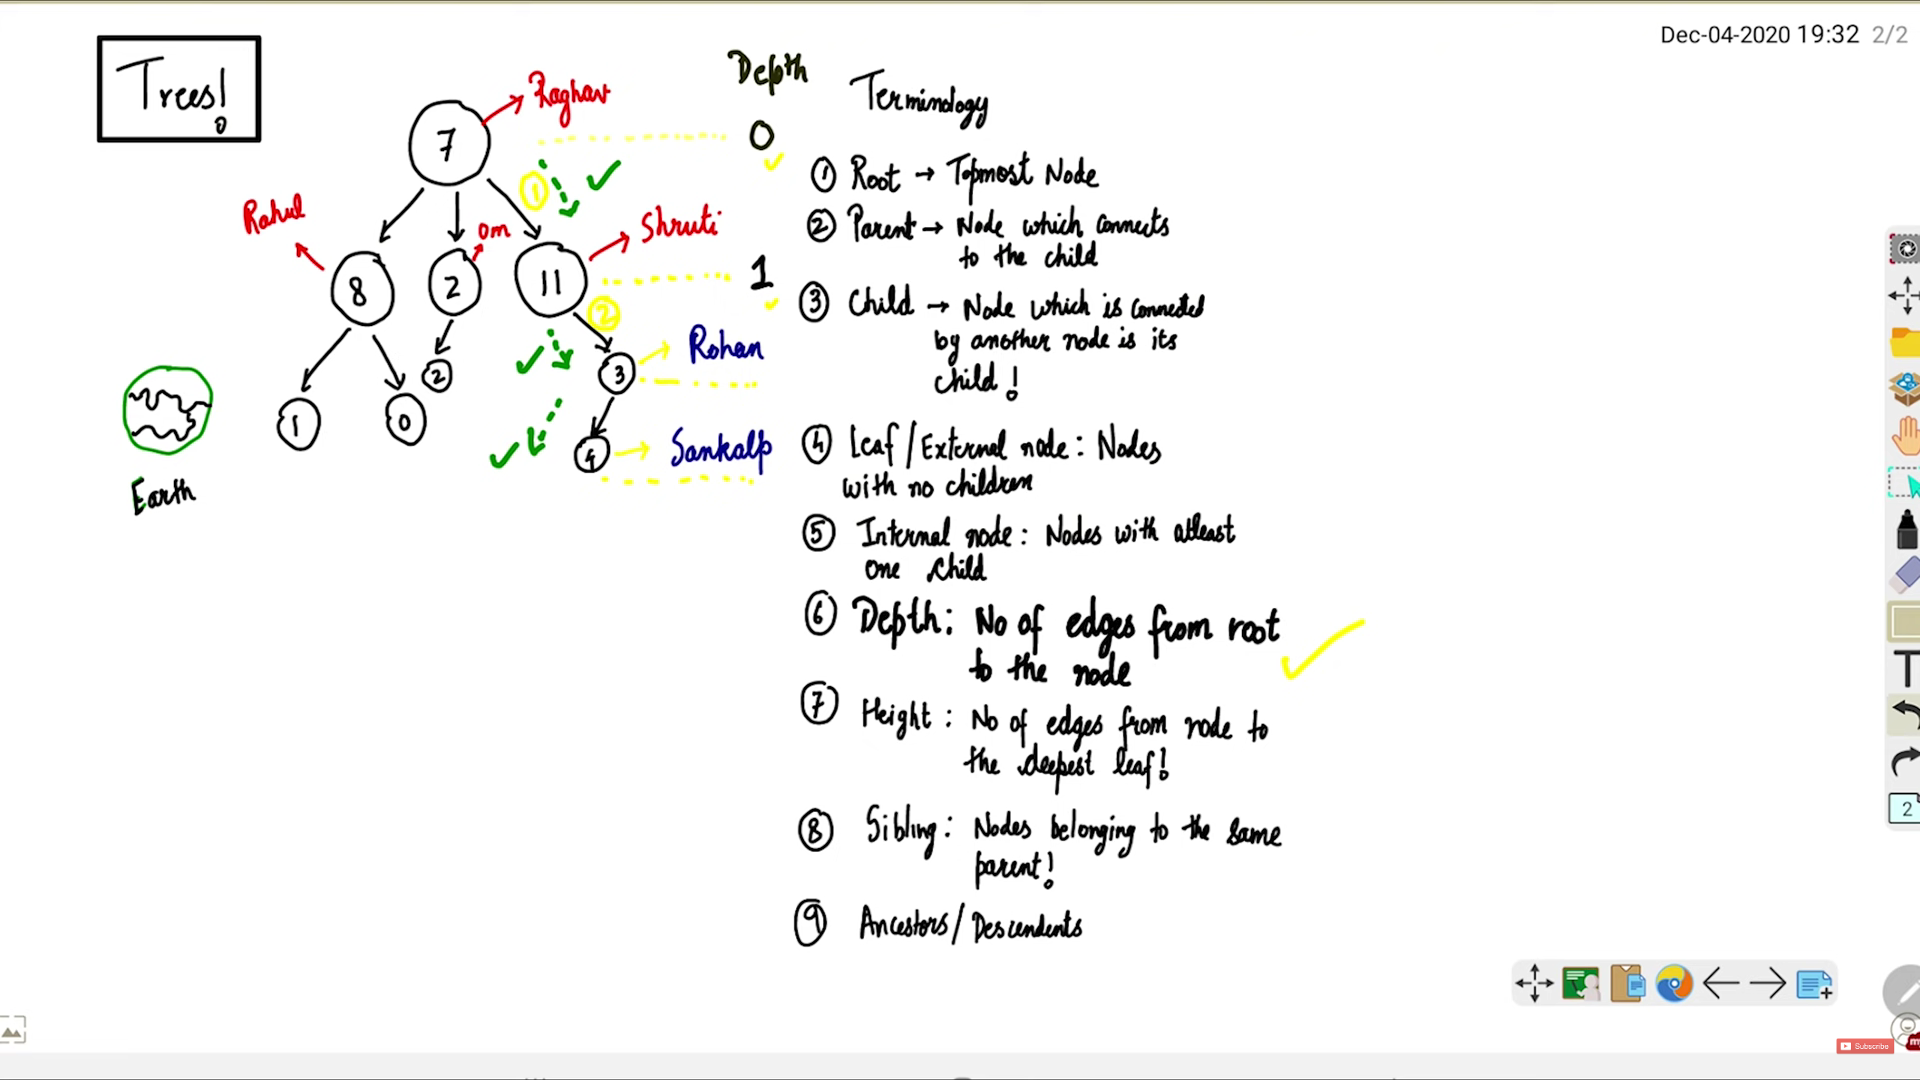 Dec-04-2020 19:32 2/2
Trees!
Depth
Raghav
7
0
1
Rahul
om
Shruti
8
2
11
1
2
Rohan
2
3
1
0
4
Sankalp
Earth
Terminology
① Root → Topmost Node
② Parent → Node which connects
to the child
③ Child → Node which is connected
by another node is its
child!
④ Leaf/External node: Nodes
with no children
⑤ Internal node: Nodes with atleast
one child
⑥ Depth: No of edges from root
to the node
⑦ Height: No of edges from node to
the deepest leaf!
⑧ Sibling: Nodes belonging to the same
parent!
⑨ Ancestors/Descendents
T
2
Subscribe